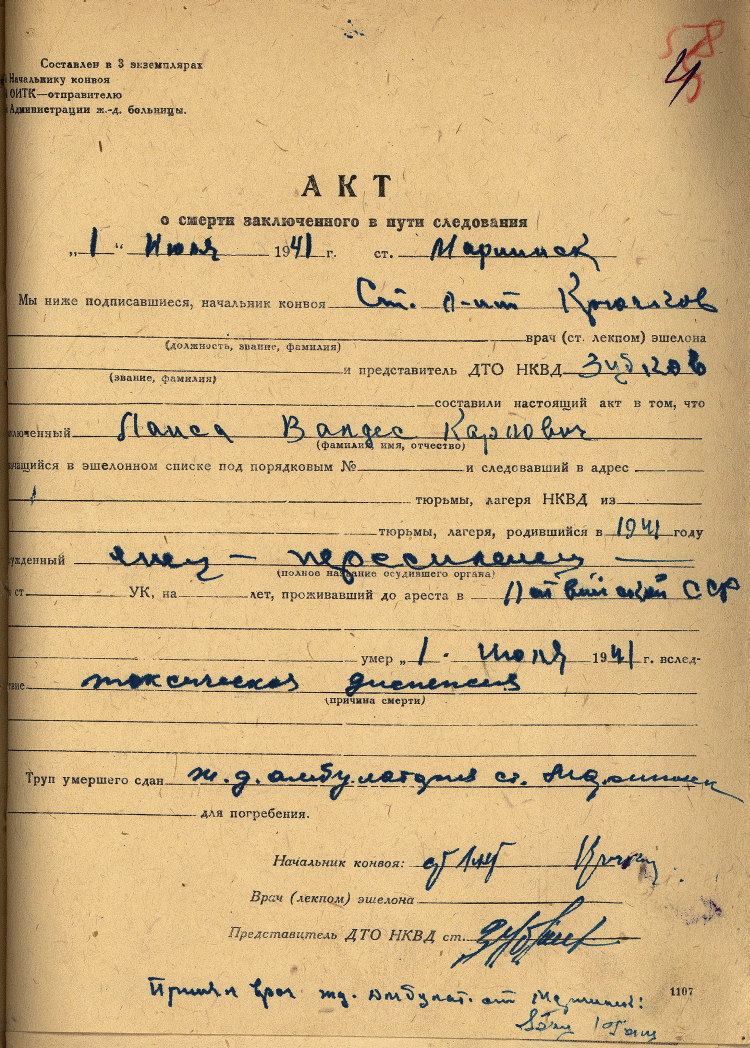 578
4
Составлен в 3 экземплярах
Начальнику конвоя
ОИТК—отправителю
Администрации ж.-д. больницы.
АКТ
о смерти заключенного в пути следования
„1“ Июля 1941 г. ст. Мариинск
Мы ниже подписавшиеся, начальник конвоя Ст. л-нт Крючков
врач (ст. лекпом) эшелона
(должность, звание, фамилия)
и представитель ДТО НКВД
(звание, фамилия)
составили настоящий акт в том, что
люченный Карпович
(фамилия, имя, отчество)
ачащийся в эшелонном списке под порядковым № и следовавший в адрес
тюрьмы, лагеря НКВД из
тюрьмы, лагеря, родившийся в 1941 году
ужденный — переселенец —
(полное название осудившего органа)
ст. УК, на лет, проживавший до ареста в Латвийской ССР
умер „1. Июля 1941 г. вслед-
твие токсическая диспепсия
(причина смерти)
Труп умершего сдан ж.д. амбулатория ст. Мариинск
для погребения.
Начальник конвоя: ст л-нт
Врач (лекпом) эшелона
Представитель ДТО НКВД ст.
1107
Принял врач жд. амбулат. ст Мариинск: